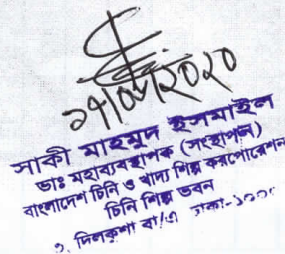 ১৭/০৮/২০২০
সাকী মাহমুদ ইসমাইল
ডাঃ মহাব্যবস্থাপক (সংস্থাপন)
বাংলাদেশ চিনি ও খাদ্য শিল্প করপোরেশন
চিনি শিল্প ভবন
৩, দিলকুশা বা/এ ঢাকা-১০০০